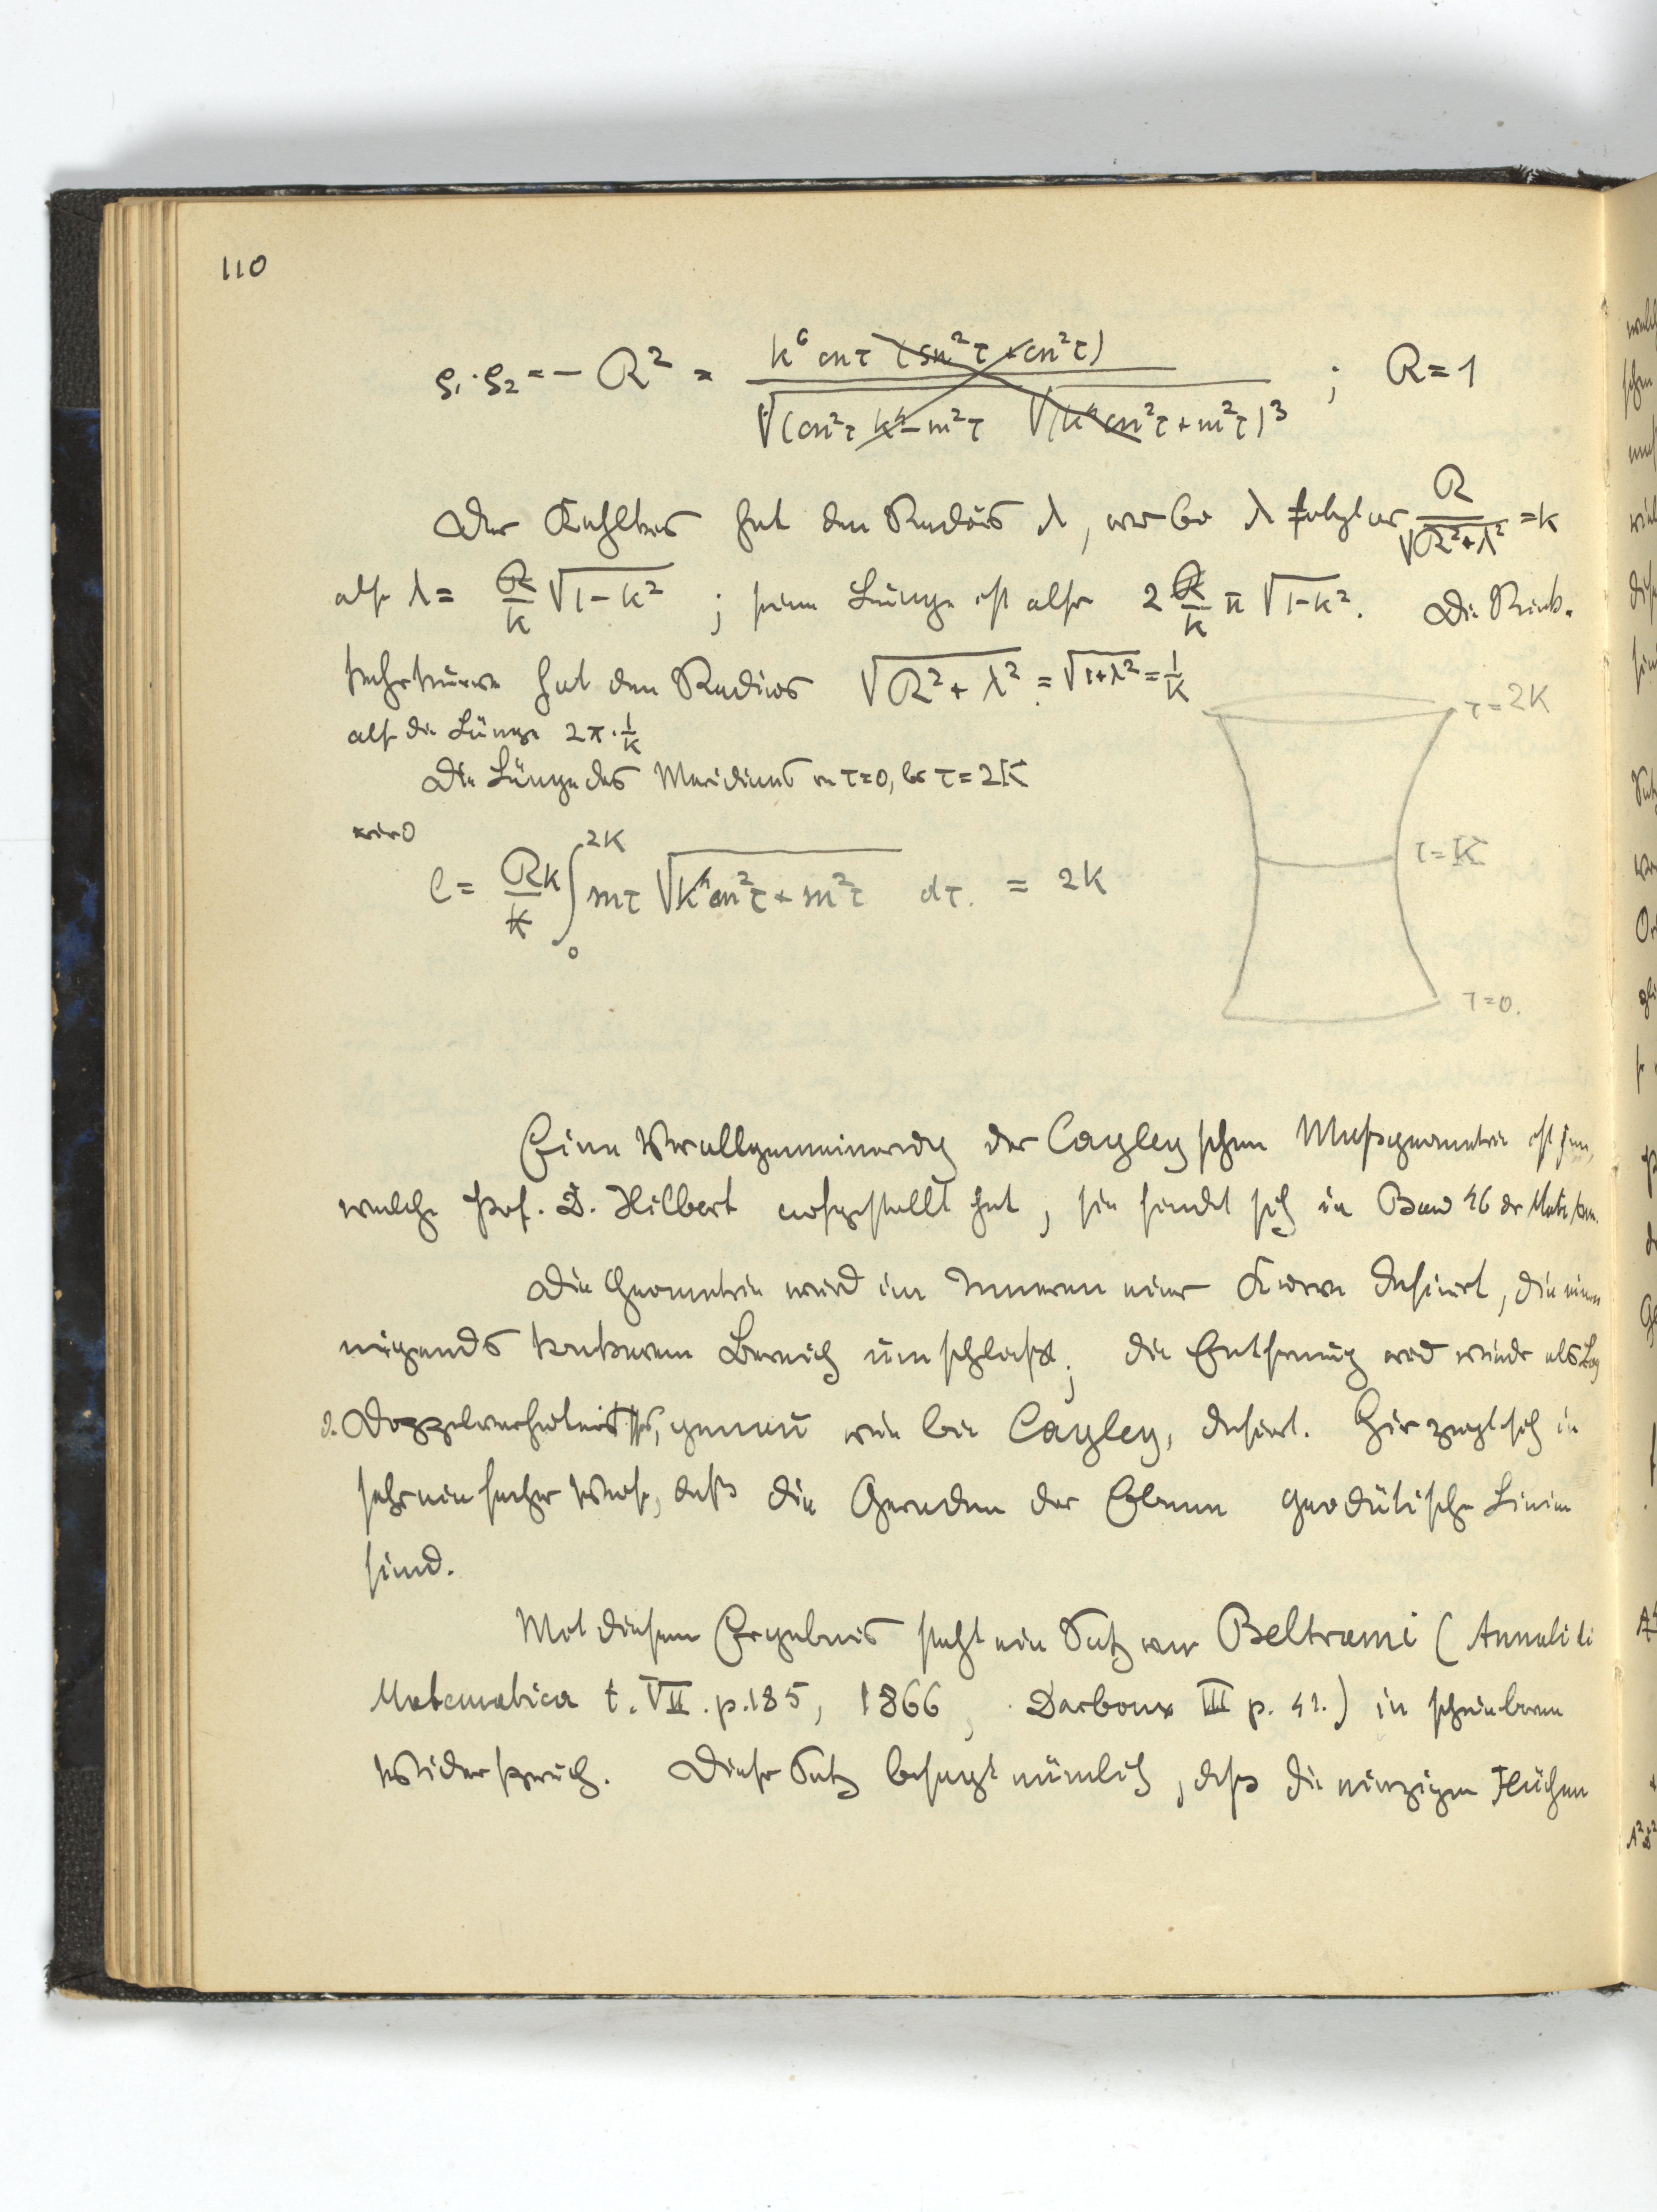 110
ρ₁·ρ₂ = − R² = k⁶ cn τ (sn²τ + cn²τ) / √(cn²τ k⁴ − sn²τ √(k⁴cn²τ + sn²τ)³ ; R = 1
Der Kehlkreis hat den Radius λ, wobei λ folgt aus R/√(R²+λ²) = k
also λ = R/k √(1−k²) ; seine Länge ist also 2 R/k π √(1−k²). Die Rück-
kehrkurve hat den Radius √(R² + λ²) = √(1+λ²) = 1/k
τ = 2K
also die Länge 2π·1/k
Die Länge des Meridians von τ=0, bis τ=2K
wird
l = Rk/k ∫₀²ᴷ sn τ √(k⁴cn²τ + sn²τ) dτ. = 2K
τ = K
τ = 0.
Eine Verallgemeinerung der Cayleyschen Maßgeometrie ist jene,
welche Prof. D. Hilbert aufgestellt hat, sie findet sich in Band 46 der Math. Ann.
Die Geometrie wird im Inneren einer Kurve definiert, die einen
nirgends konkaven Bereich umschließt; die Entfernung wird wieder als Log
d. Doppelverhältnisses, genau wie bei Cayley, definiert. Hier zeigt sich in
sehr einfacher Weise, daß die Geraden der Ebene geodätische Linien
sind.
Mit diesem Ergebnis steht ein Satz von Beltrami (Annali di
Matematica t. VII. p. 185, 1866, Darboux III p. 41.) in scheinbarem
Widerspruch. Dieser Satz besagt nämlich, daß die einzigen Flächen